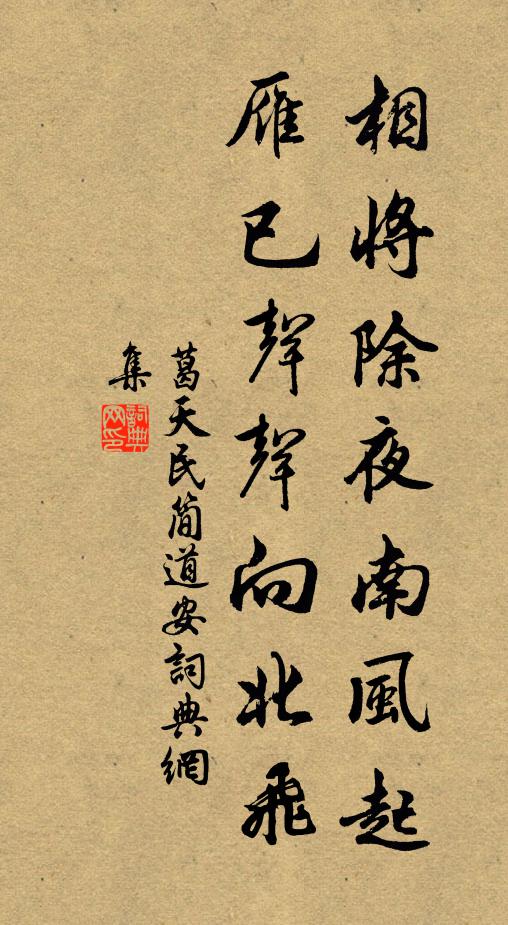 相將除夜南風起
雁已聲聲向北飛
葛天民簡道安詞典網
集
詞典網印